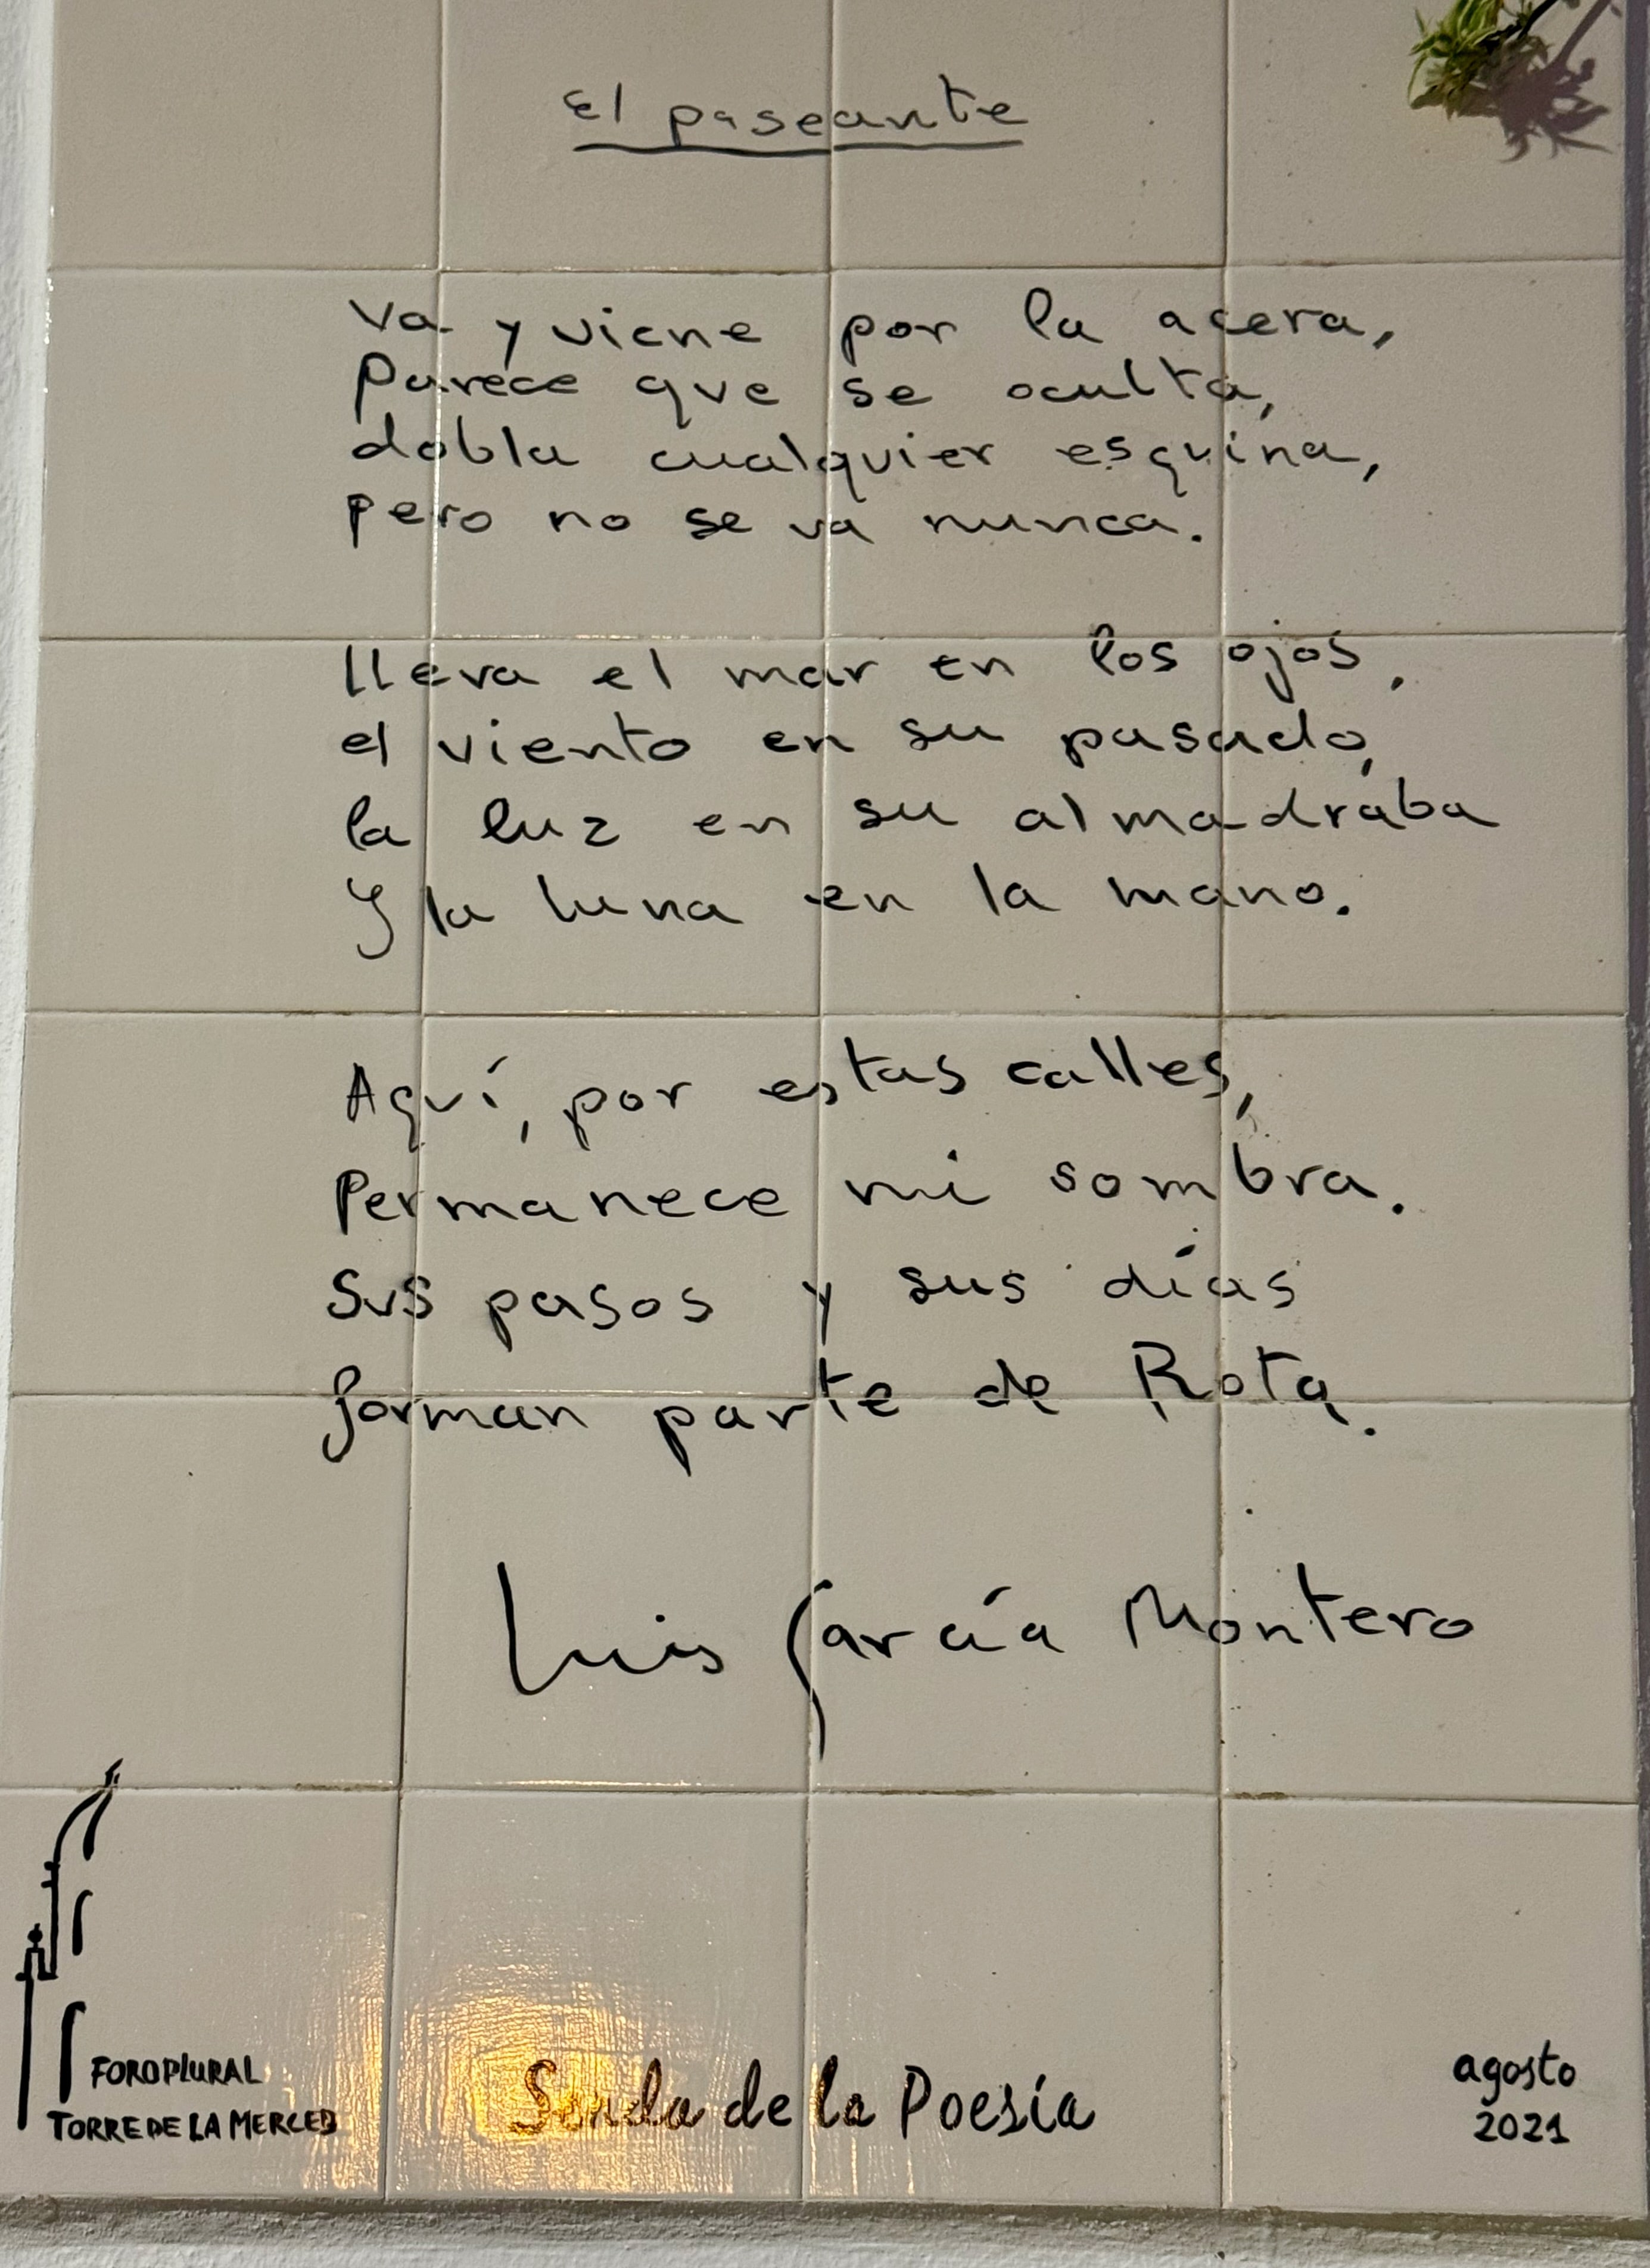 El paseante
Va y viene por la acera,
Parece que se oculta,
dobla cualquier esquina,
pero no se va nunca.
lleva el mar en los ojos,
el viento en su pasado,
la luz en su almadraba
y la luna en la mano.
Aquí, por estas calles,
Permanece mi sombra.
Sus pasos y sus días
forman parte de Rota.
Luis García Montero
FORO PLURAL
TORRE DE LA MERCED
Senda de la Poesía
agosto
2021